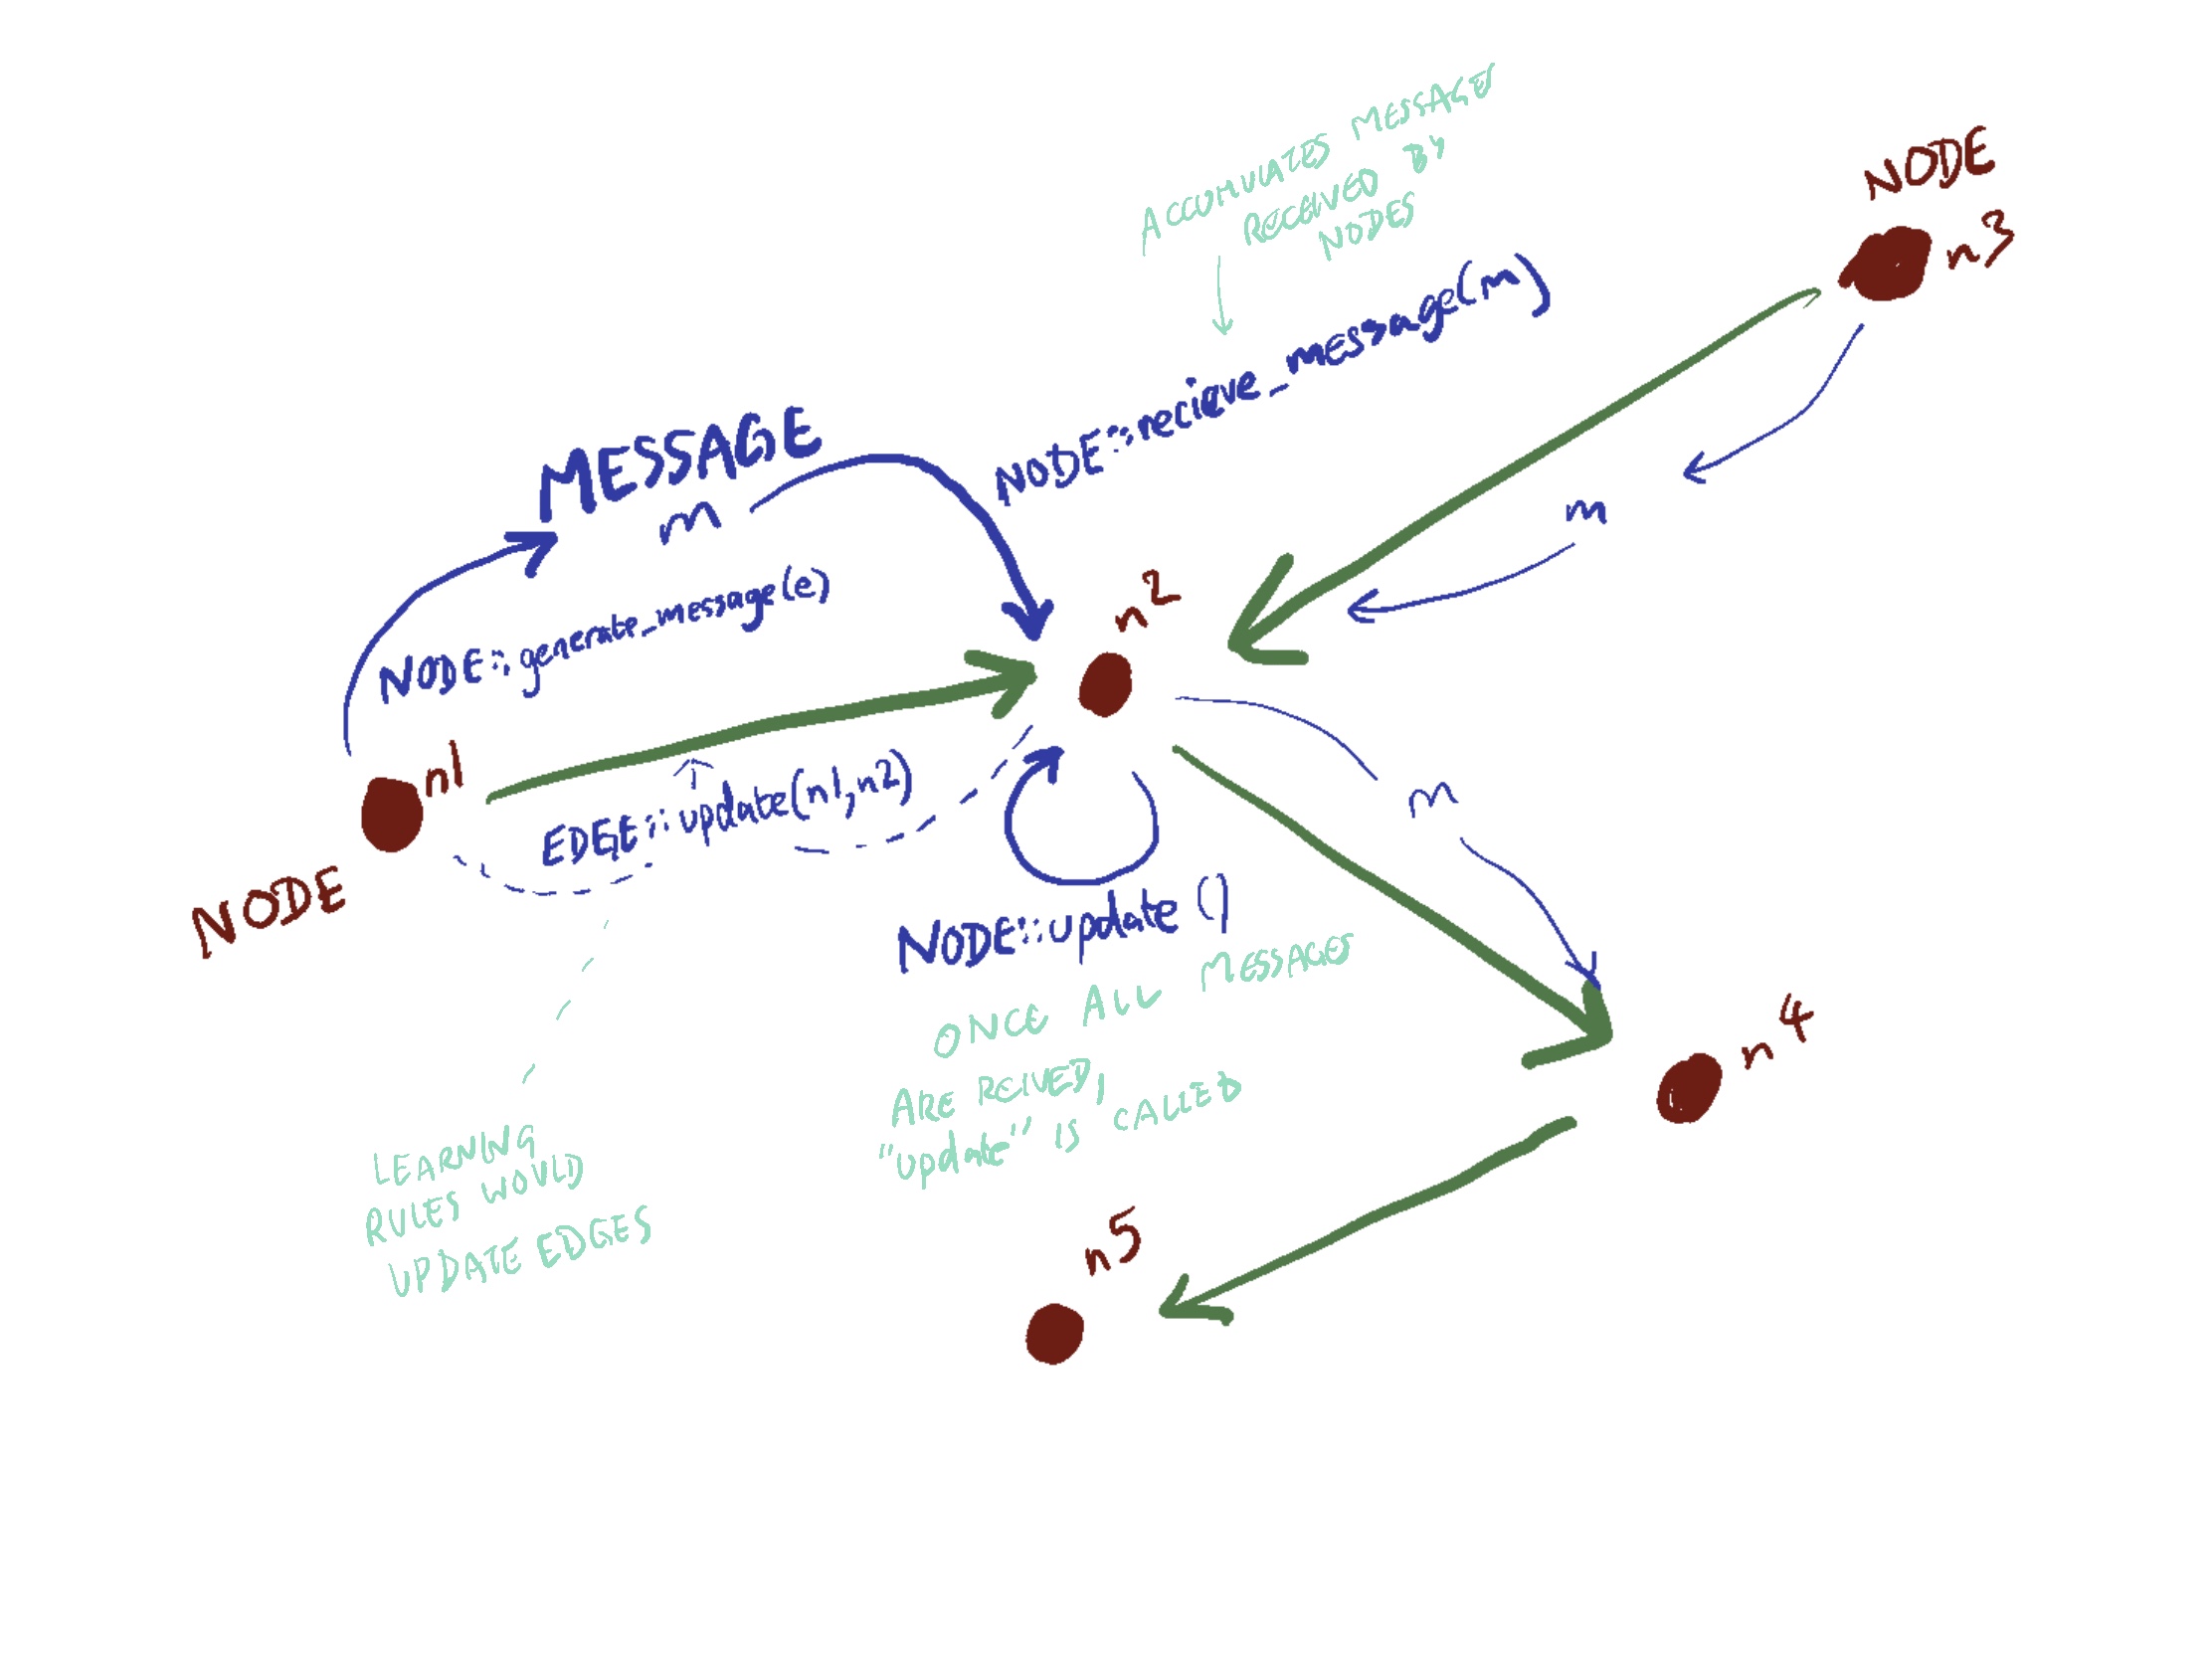 ACCUMULATES MESSAGES
RECEIVED BY
NODES
NODE
n3
NODE::recieve_message(m)
MESSAGE
m
m
NODE::generate_message(e)
n2
n1
EDGE::update(n1,n2)
m
NODE
NODE::update()
ONCE ALL MESSAGES
ARE REIVED,
"update" IS CALLED
n4
LEARNING
RULES WOULD
UPDATE EDGES
n5